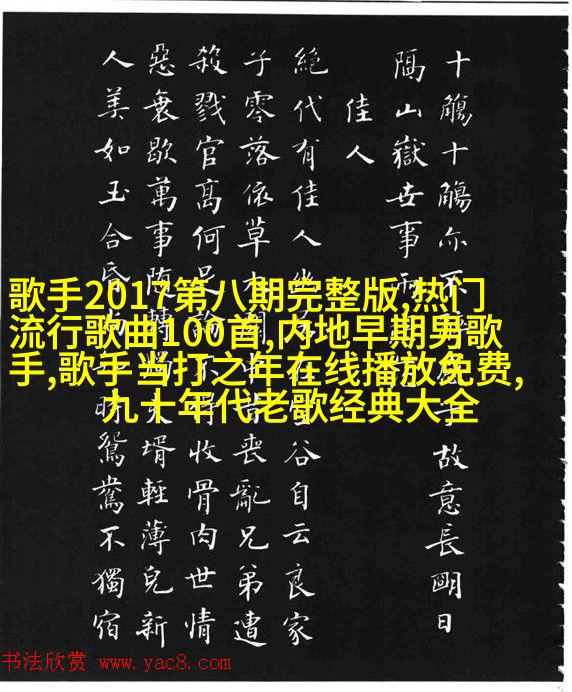 十觴十觴亦不子故意長明日
隔山嶽世事
佳人
絕代有佳人幽在空谷自云良家
子零落依草木關中昔喪亂兄弟遭
殺戮官高何足論不得收骨肉世情
惡衰歇萬事隨轉燭夫壻輕薄兒新
人美如玉合昏尚時鴛鴦不獨宿
歌手2017第八期完整版,热门
流行歌曲100首,内地早期男歌
手,歌手当打之年在线播放免费,
九十年代老歌经典大全
书法欣赏 www.yac8.com